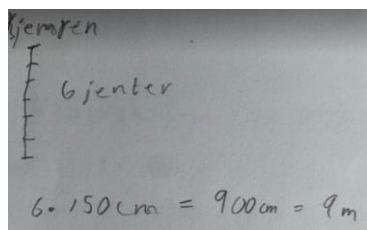 Kjemren
6 jenter
6 · 150 cm = 900 cm = 9 m